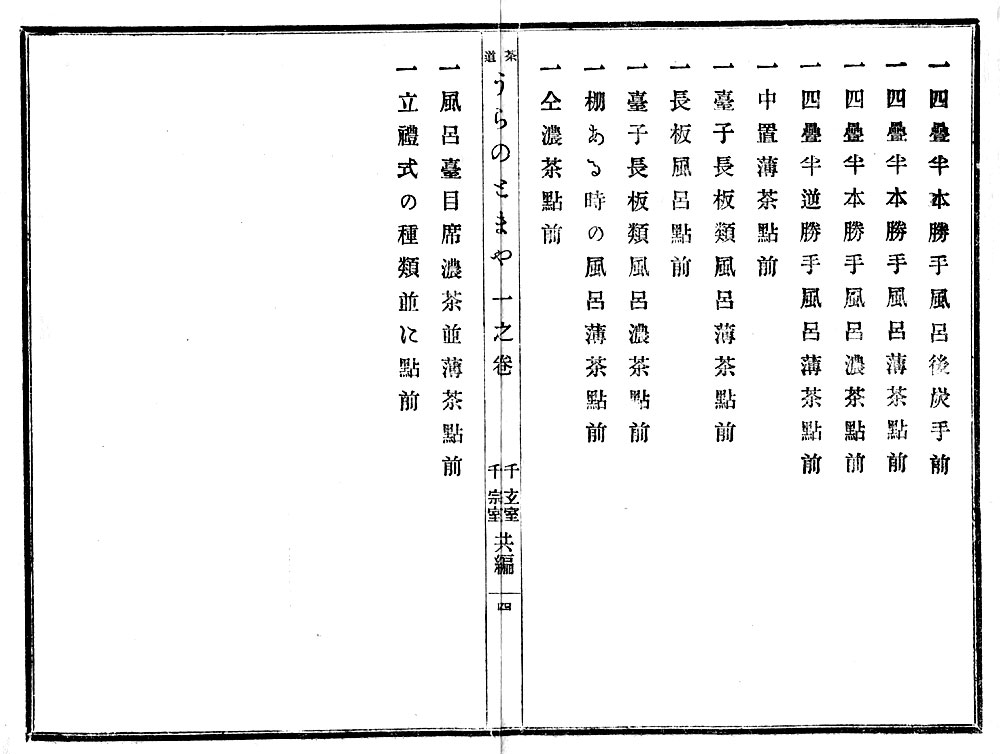 一四疊半本勝手風呂後炭手前
一四疊半本勝手風呂薄茶點前
一四疊半本勝手風呂濃茶點前
一四疊半逆勝手風呂薄茶點前
一中置薄茶點前
一臺子長板類風呂薄茶點前
一長板風呂點前
一臺子長板類風呂濃茶點前
一棚ある時の風呂薄茶點前
一仝濃茶點前
茶道
うらのとまや一之卷
千玄室
千宗室
共編
四
一風呂臺目席濃茶並薄茶點前
一立禮式の種類並に點前